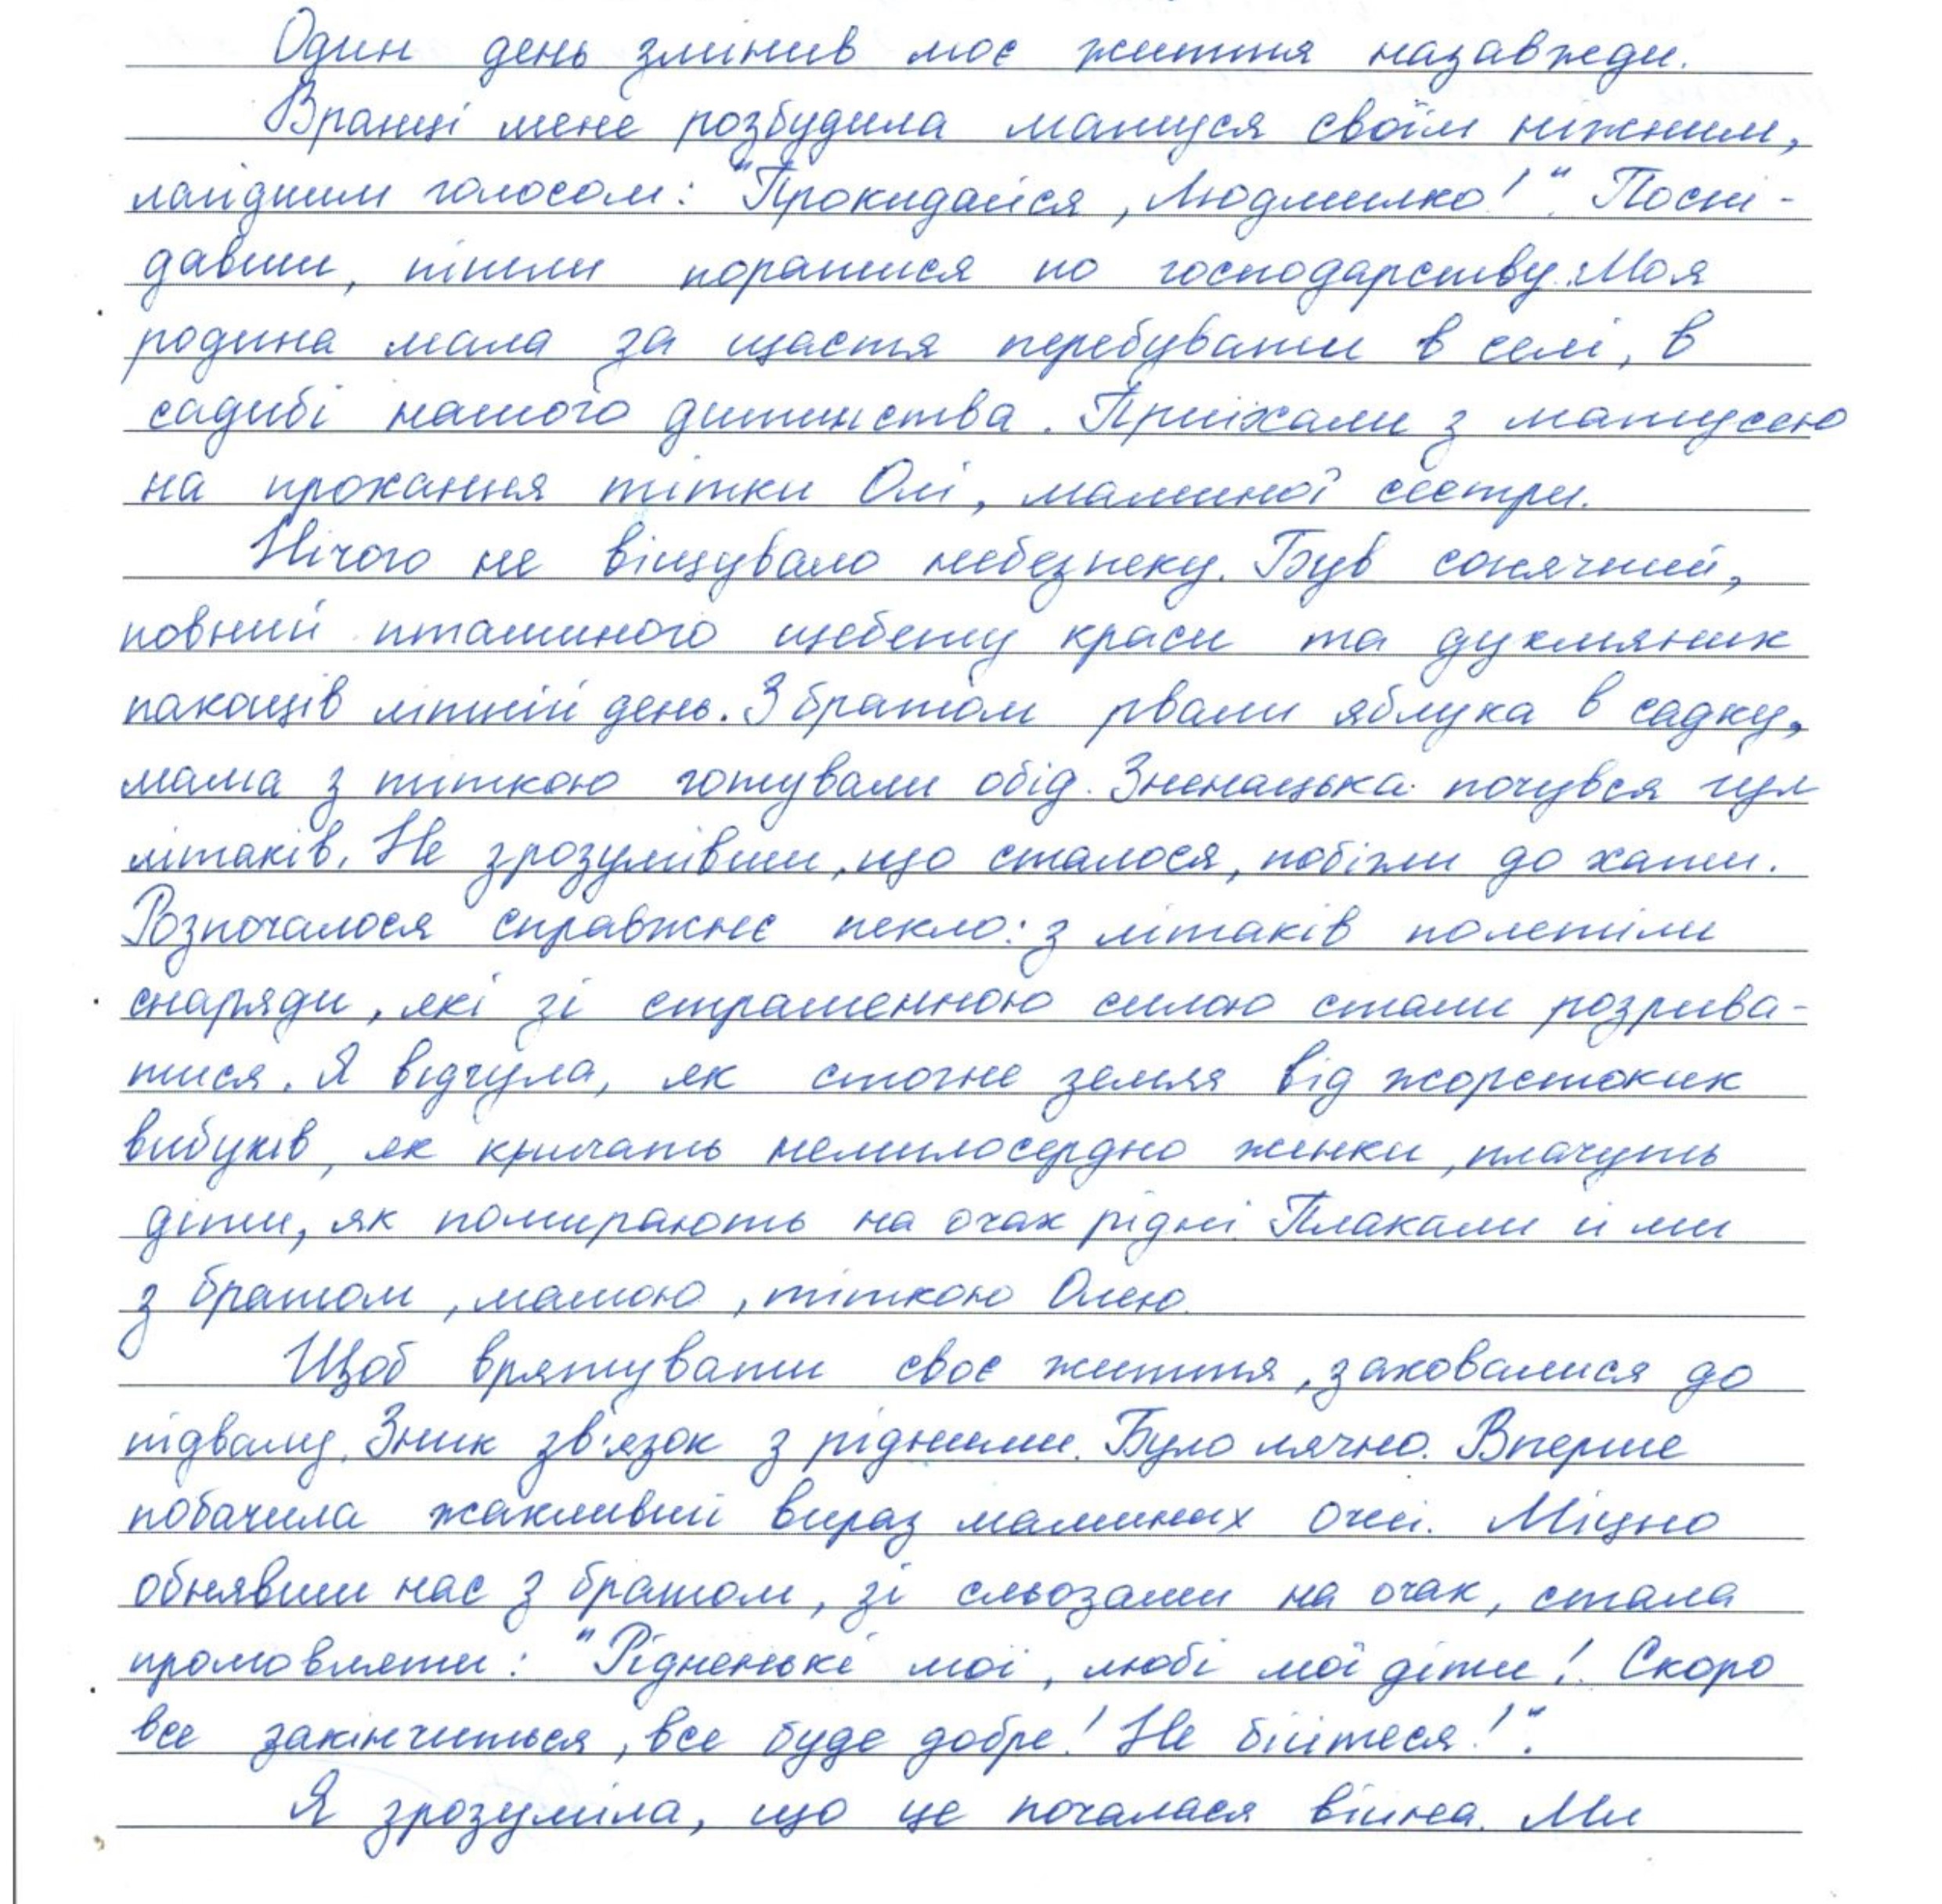 Один день змінив моє життя назавжди.
Вранці мене розбудила матуся своїм ніжним,
лагідним голосом: "Прокидайся, Людмилко!". Посні-
давши, пішли поратися по господарству. Моя
родина мала за щастя перебувати в селі, в
садибі нашого дитинства. Приїхали з матусею
на прохання тітки Олі, маминої сестри.
Нічого не віщувало небезпеку. Був сонячний,
повний пташиного щебету краси та духмяних
пахощів літній день. З братом рвали яблука в садку,
мама з тіткою готували обід. Зненацька почувся гул
літаків. Не зрозумівши, що сталося, побігли до хати.
Розпочалося справжнє пекло: з літаків полетіли
снаряди, які зі страшенною силою стали розрива-
тися. Я відчула, як стогне земля від жорстоких
вибухів, як кричать немилосердно жінки, плачуть
діти, як помирають на очах рідні. Плакали й ми
з братом, мамою, тіткою Олею.
Щоб врятувати своє життя, заховалися до
підвалу. Зник зв'язок з рідними. Було лячно. Вперше
побачила жахливий вираз маминих очей. Міцно
обнявши нас з братом, зі сльозами на очах, стала
промовляти: "Рідненькі мої, любі мої діти! Скоро
все закінчиться, все буде добре! Не бійтеся!".
Я зрозуміла, що це почалася війна. Ми